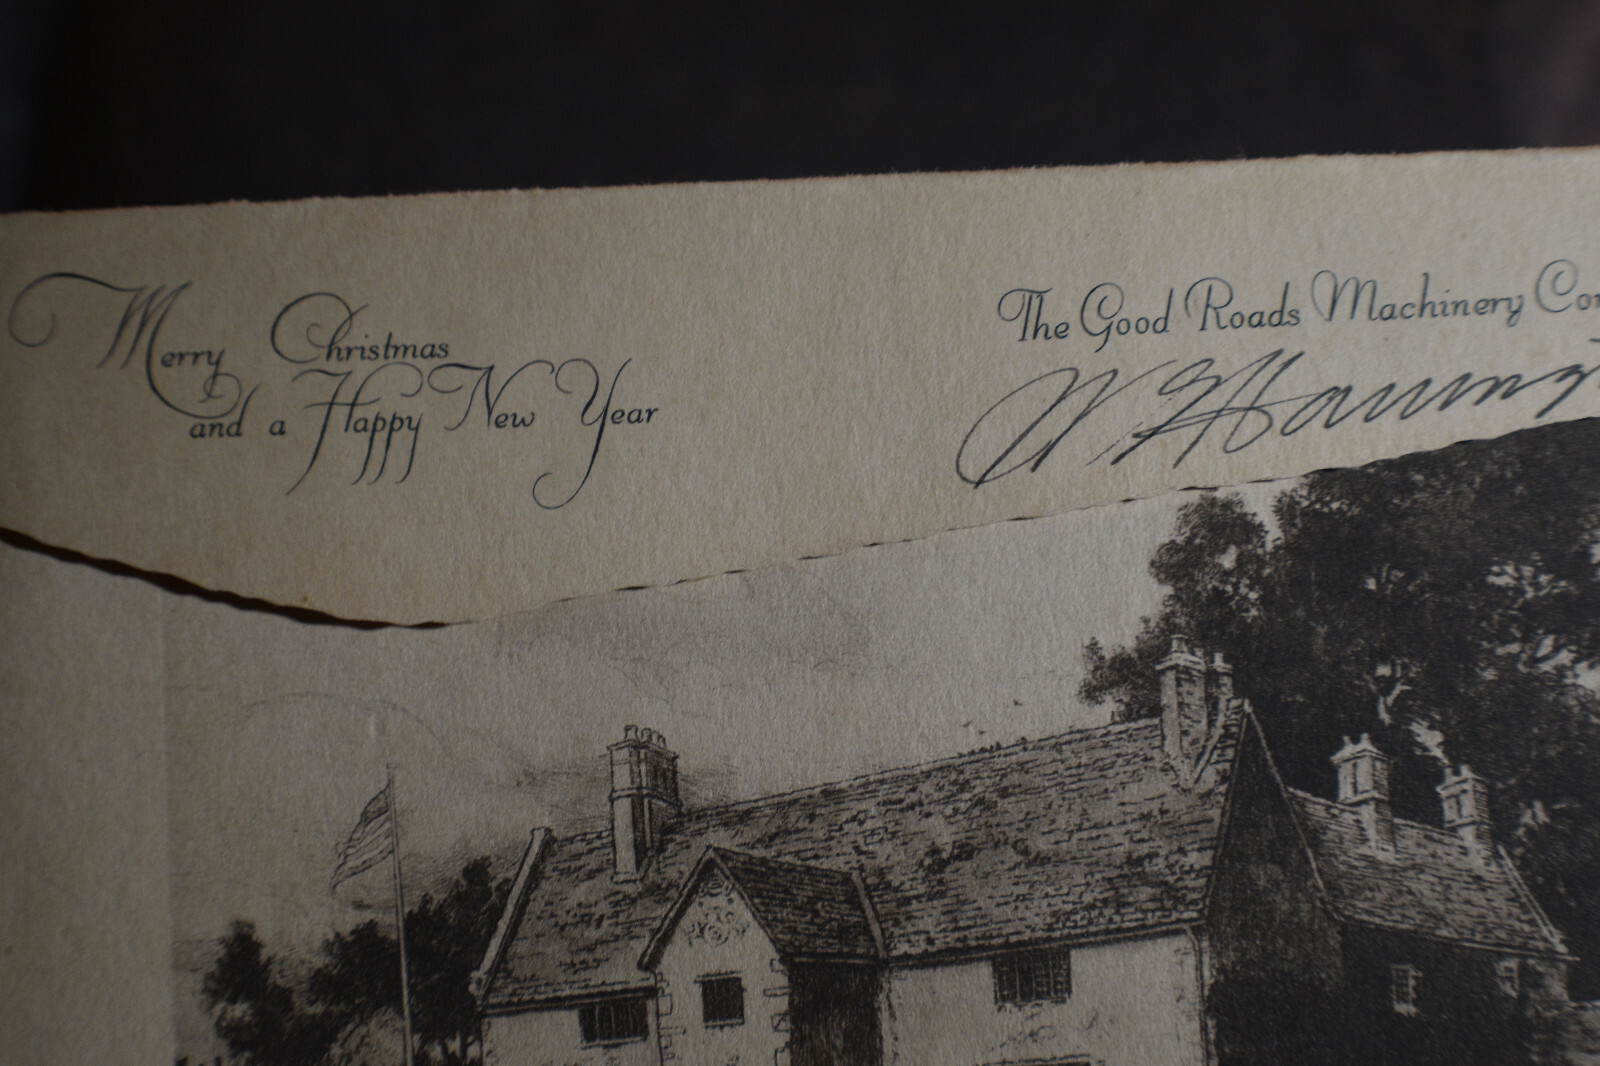 Merry Christmas
and a Happy New Year
The Good Roads Machinery